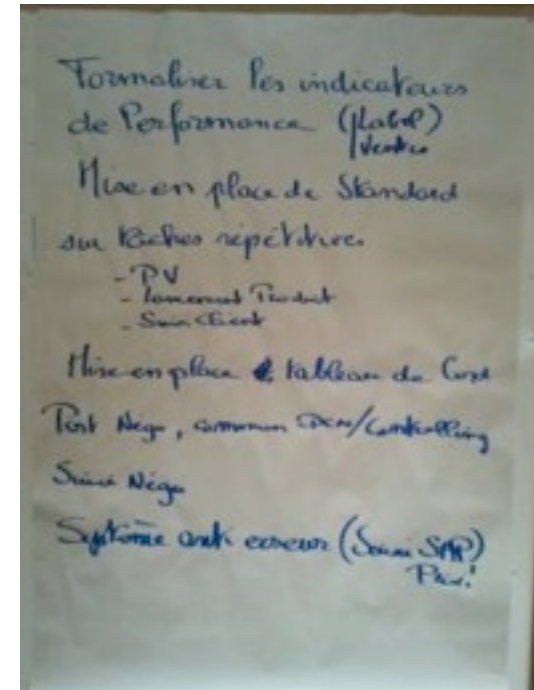 Formaliser les indicateurs
de Performance (Label)
Ventes
Mise en place de Standard
sur tâches répétitives
- PV
- Lancement Product
- Suivi Client
Mise en place tableau de
Post Négo, commun /Controlling
Suivi Négo
Système anti erreur (Saisie SAP)